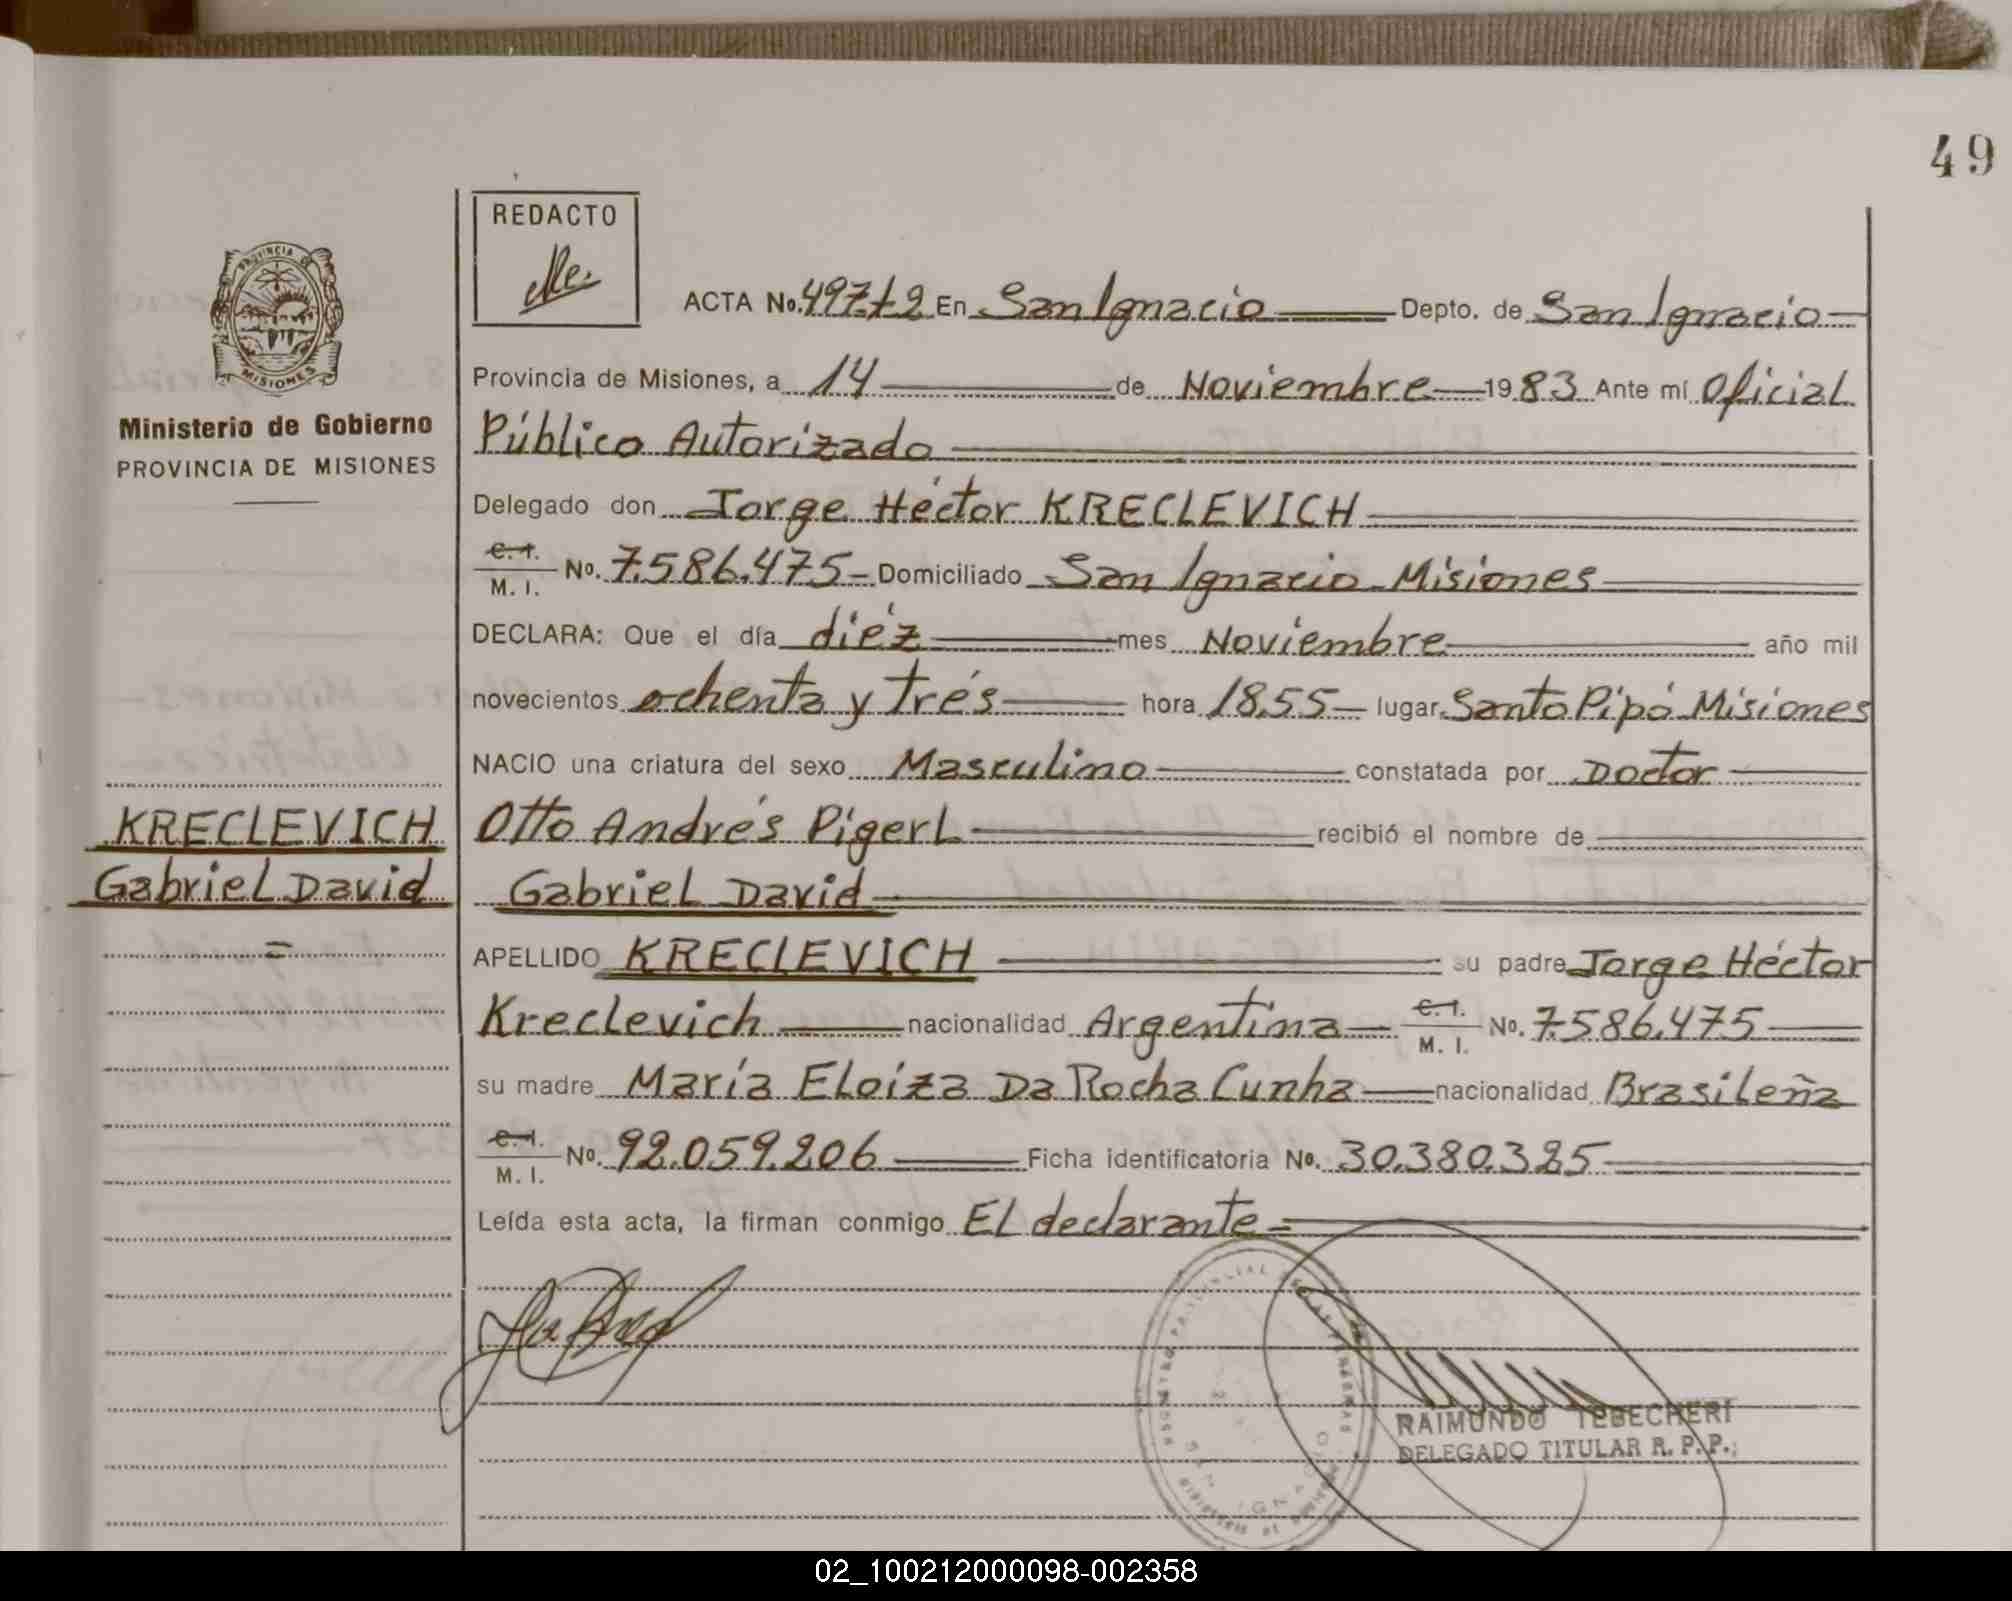 49
REDACTO
PROVINCIA DE
MISIONES
Ministerio de Gobierno
PROVINCIA DE MISIONES
KRECLEVICH
Gabriel David
=
ACTA No. 497.t2 En San Ignacio Depto. de San Ignacio
Provincia de Misiones, a 14 de Noviembre 1983 Ante mí Oficial
Público Autorizado
Delegado don Jorge Héctor KRECLEVICH
C. I.
M. I. No. 7.586.475 Domiciliado San Ignacio Misiones
DECLARA: Que el día diéz mes Noviembre año mil
novecientos ochenta y trés hora 18,55 lugar Santo Pipó Misiones
NACIO una criatura del sexo Masculino constatada por Doctor
Otto Andrés Pigerl recibió el nombre de
Gabriel David
APELLIDO KRECLEVICH su padre Jorge Héctor
Kreclevich nacionalidad Argentina C. I. M. I. No. 7.586.475
su madre María Eloiza Da Rocha Cunha nacionalidad Brasileña
C. I.
M. I. No. 92.059.206 Ficha identificatoria No. 30.380.385
Leída esta acta, la firman conmigo El declarante =
SAN IGNACIO
RAIMUNDO TEBECHERI
DELEGADO TITULAR R. P. P.
02_100212000098-002358